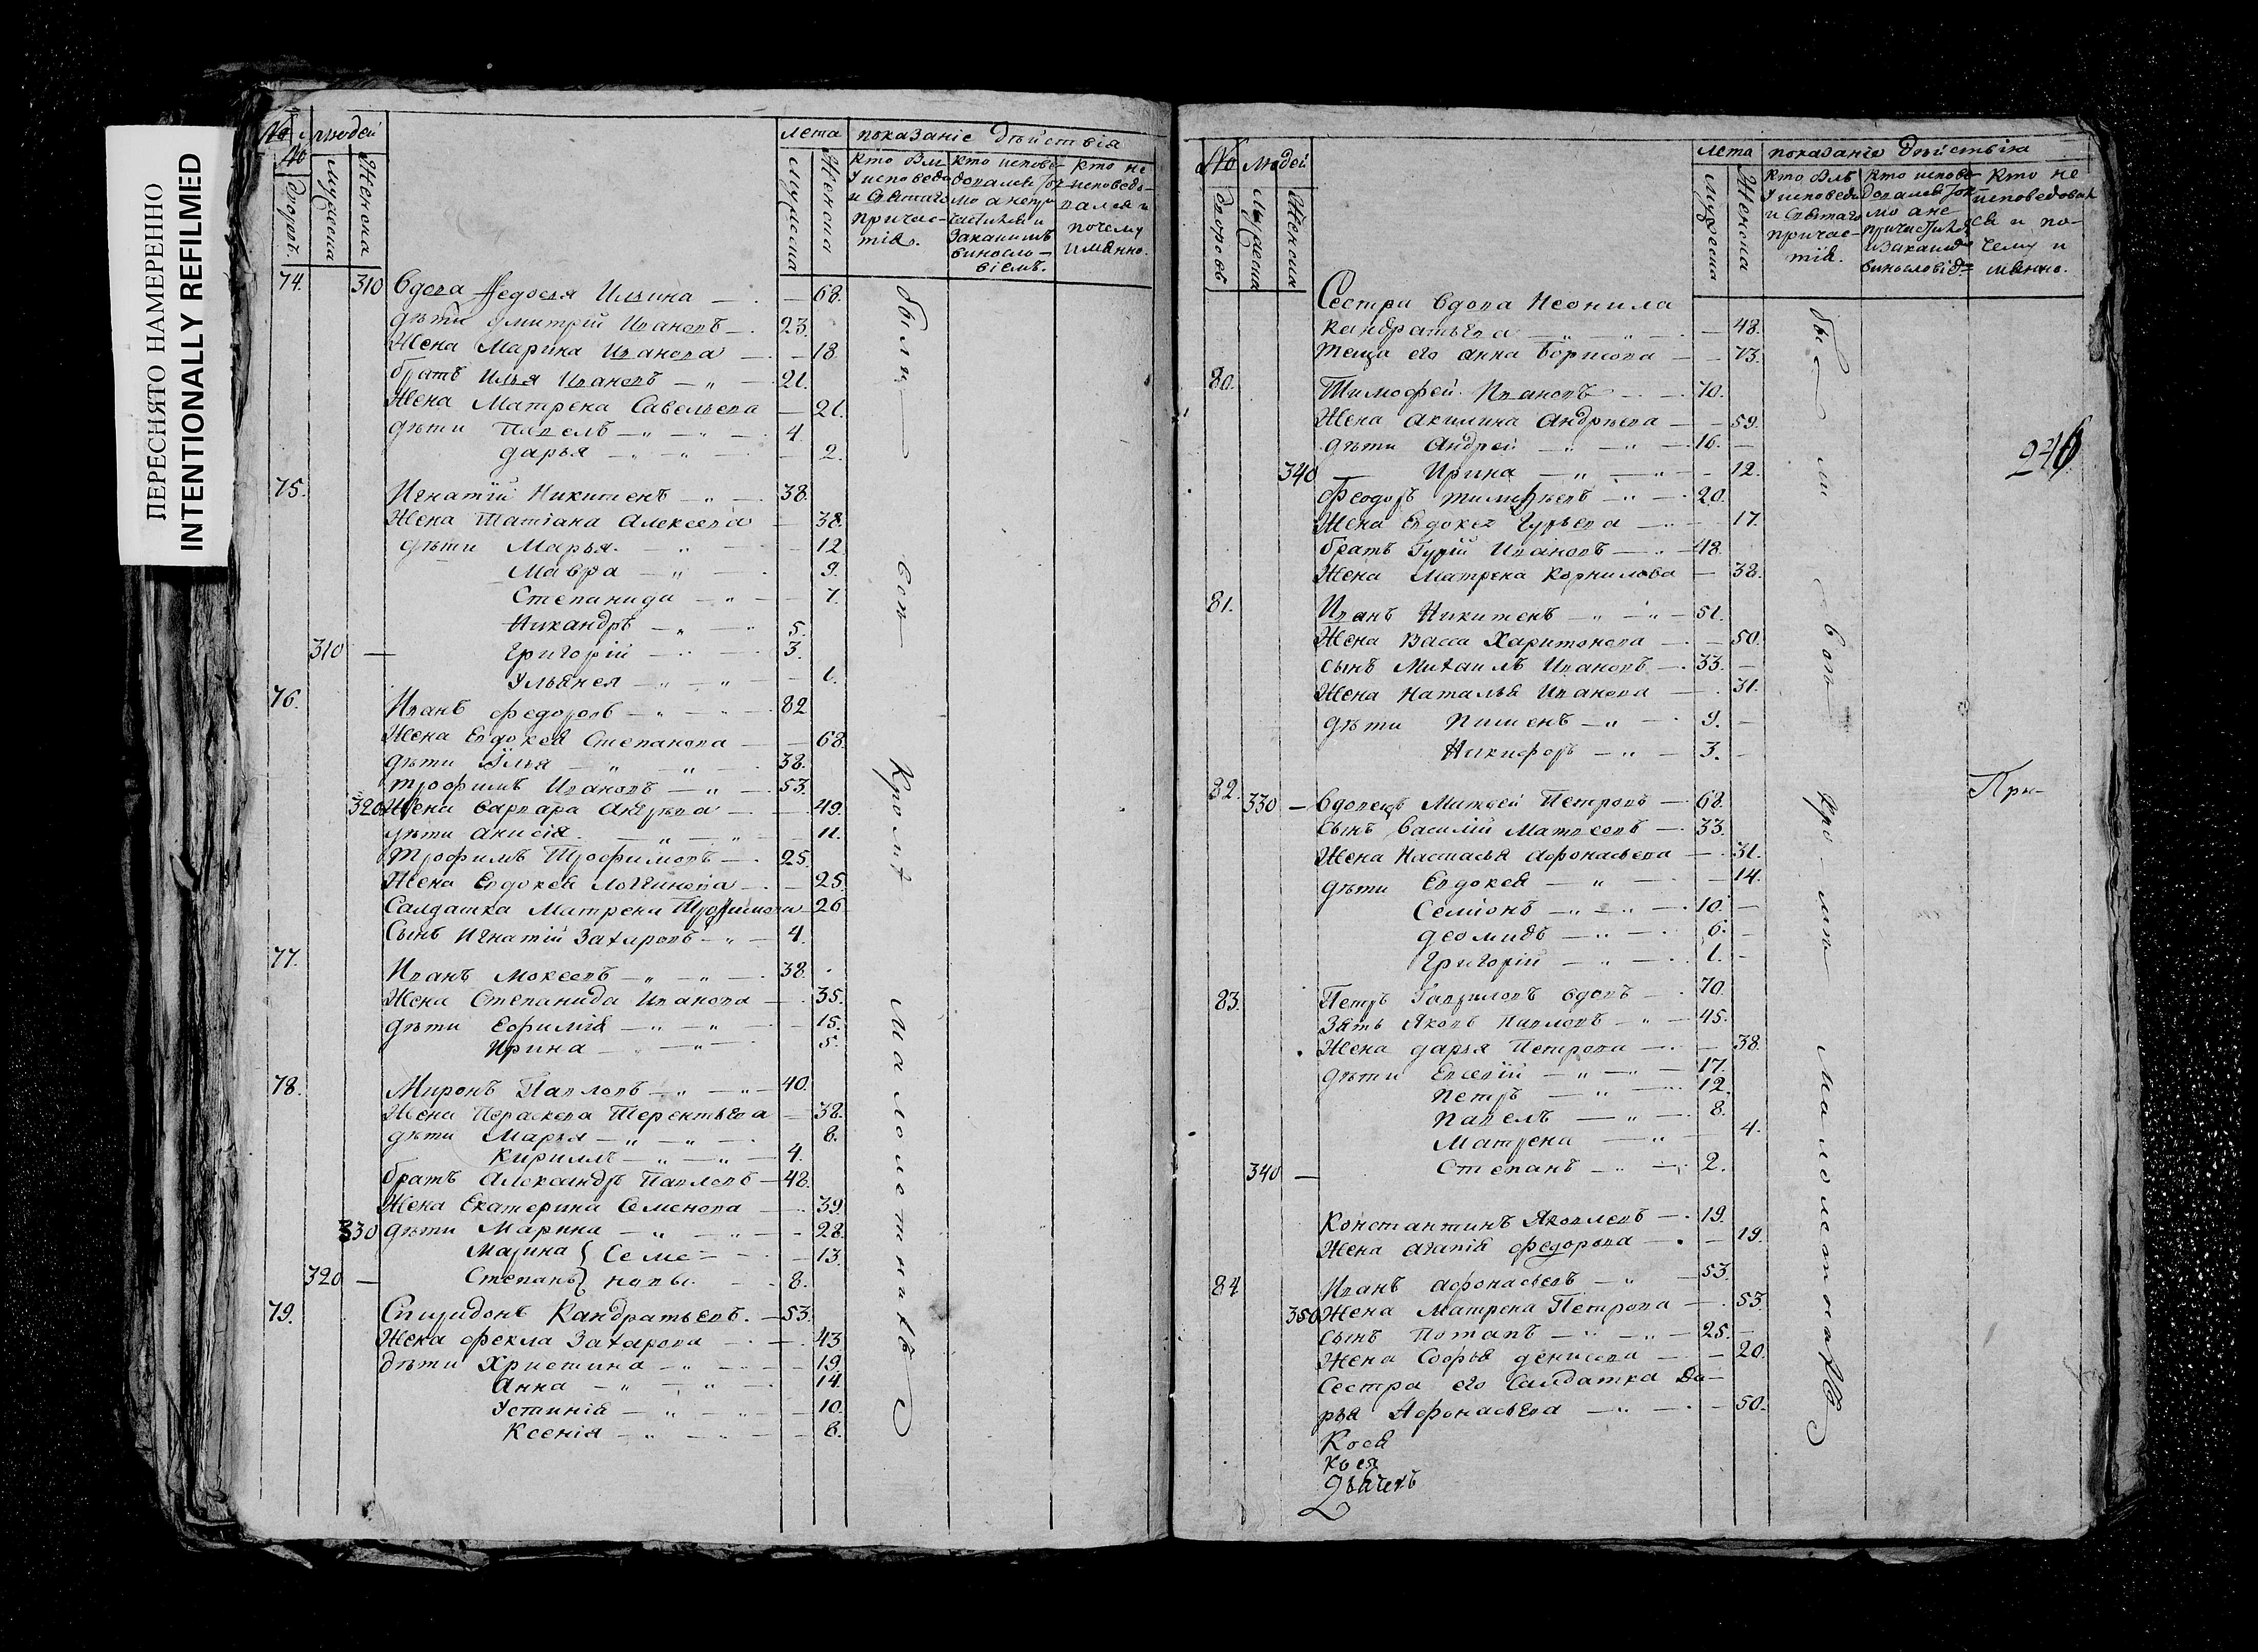 ПЕРЕСНЯТО НАМЕРЕННО
INTENTIONALLY REFILMED
№ людей лета показаніе дѣйствія
№ дворовъ мужеска женска мужеска женска
кто был у исповеди и святаго причастія.
кто не исповедовался и почему имянно.
74. 310 Вдова Федосия Ильина 68.
дѣти Дмитрій Ивановъ 23.
Жена Марина Иванова 18
братъ Илья Ивановъ 21.
Жена Матрена Савельева 21.
дѣти Павелъ 4.
Дарья 2.
75. Игнатій Никитенъ 38.
Жена Татіана Алексеева 38.
дѣти Марья 12
Мавра 9.
Степанида 7.
Никандръ 5.
310 Григорій 3.
Ульянея 1.
76. Иванъ Федоровъ 82
Жена Евдокея Степанова 68.
дѣти Илья 38.
Трофимъ Ивановъ 53.
320 Жена Варвара Андреева 49.
дѣти Анисія 11.
Трофимъ Трофимовъ 25
Жена Евдокея Логгинова 25.
Салдатка Матрена Трофимова 26
Сынъ Игнатій Захаровъ 4.
77. Иванъ Мокеевъ 38.
Жена Степанида Иванова 35.
дѣти Еѳимія 15.
Ирина 5.
78. Миронъ Павловъ 40.
Жена Параскева Терентьева 38.
дѣти Марья 8.
Кириллъ 4.
братъ Александръ Павловъ 48.
Жена Екатерина Семенова 39.
330 дѣти Марина 28.
Марина } Семе- 13.
320 Степанъ } новы. 8.
79. Спиридонъ Кандратьевъ 53.
Жена Фекла Захарова 43
дѣти Христина 19.
Анна 14.
Устинія 10.
Ксенія 8.
были вси кромѣ малолетнихъ
№ людей лета показаніе дѣйствія
дворовъ мужеска женска мужеска женска
кто не исповедовался и почему имянно.
Сестра вдова Неонила
Кандратьева 48.
Теща его Анна Борисова 73.
80. Тимофей Ивановъ 70.
Жена Акилина Андреева 59.
дѣти Андрей 16.
340 Ирина 12.
Феодоръ Тимофѣевъ 20.
Жена Евдокея Гурьева 17.
братъ Гурій Ивановъ 48.
Жена Матрена Корнилова 38.
81. Иванъ Никитенъ 51.
Жена Васса Харитонова 50.
сынъ Михаилъ Ивановъ 33.
Жена Наталья Иванова 31.
дѣти Пименъ 9.
Никифоръ 3.
82. 330 Вдовецъ Матвей Петровъ 68.
сынъ Василій Матвеевъ 33.
Жена Настасья Афонасьева 31.
дѣти Евдокея 14.
Семіонъ 10.
Деомидъ 6.
Григорій 1.
83. Петръ Гавриловъ вдовъ 70.
Зять Яковъ Павловъ 45.
Жена Дарья Петрова 38.
дѣти Евсевій 17.
Петръ 12.
Павелъ 8.
Матрена 4.
340 Степанъ 2.
Константинъ Яковлевъ 19.
Жена Агапія Федорова 19.
84. Иванъ Афонасьевъ 53.
350 Жена Матрена Петрова 53.
сынъ Потапъ 25.
Жена Софья Денисова 20.
Сестра его Салдатка Да-
рья Афонасьева 50.
были вси кромѣ малолетнихъ
246
При-